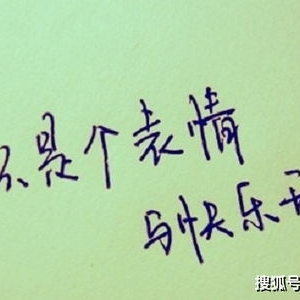 是个表情
与快乐
搜狐号